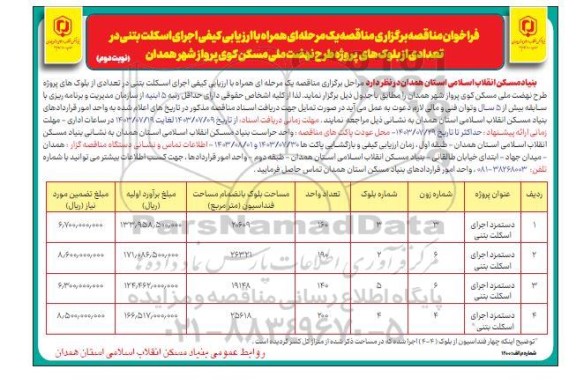 فراخوان مناقصه برگزاری مناقصه یک مرحله‌ای همراه با ارزیابی کیفی اجرای اسکلت بتنی در
تعدادی از بلوک های پروژه طرح نهضت ملی مسکن کوی پرواز شهر همدان
(نوبت دوم)
بنیاد مسکن انقلاب اسلامی استان همدان در نظر دارد مراحل برگزاری مناقصه یک مرحله ای همراه با ارزیابی کیفی اجرای اسکلت بتنی در تعدادی از بلوک های پروژه
طرح نهضت ملی مسکن کوی پرواز شهر همدان را مطابق با جدول ذیل برگزار نماید. لذا از کلیه اشخاص حقوقی دارای حداقل رتبه ۵ ابنیه از سازمان مدیریت و برنامه ریزی با
سابقه بیش از ۵ سال وتوان فنی و مالی لازم دعوت به عمل می آید در صورت تمایل جهت دریافت اسناد مناقصه مذکور در تاریخ های اعلام شده به واحد امور قراردادهای
بنیاد مسکن انقلاب اسلامی استان همدان به نشانی ذیل مراجعه نمایند. مهلت زمانی دریافت اسناد: از تاریخ ۱۴۰۳/۰۷/۰۹ لغایت ۱۴۰۳/۰۷/۱۹ در ساعات اداری - مهلت
زمانی ارائه پیشنهاد: حداکثر تا تاریخ ۱۴۰۳/۰۷/۲۹ محل عودت پاکت های مناقصه: واحد حراست بنیاد مسکن انقلاب اسلامی استان همدان به نشانی بنیاد مسکن
انقلاب اسلامی استان همدان - طبقه اول. زمان ارزیابی کیفی و بازگشایی پاکت ها ۱۴۰۳/۰۷/۳۰ و ۱۴۰۳/۰۸/۰۱ - اطلاعات تماس و نشانی دستگاه مناقصه گزار: همدان
- میدان جهاد - ابتدای خیابان طالقانی - بنیاد مسکن انقلاب اسلامی استان همدان - طبقه دوم - واحد امور قراردادها. جهت کسب اطلاعات بیشتر می توانید با شماره
تلفن: ۳۸۲۶۸۰۰۳-۰۸۱ واحد امور قراردادهای بنیاد مسکن استان همدان تماس حاصل فرمایید.
ردیف عنوان پروژه شماره زون شماره بلوک تعداد واحد مساحت بلوک بانضمام مساحت فنداسیون (متر مربع) مبلغ برآورد اولیه (ریال) مبلغ تضمین مورد نیاز (ریال)
۱ دستمزد اجرای اسکلت بتنی ۳ ۳ ۱۶۰ ۲۰۶۰۹ ۱۳۳,۹۵۸,۵۰۰,۰۰۰ ۶,۷۰۰,۰۰۰,۰۰۰
۲ دستمزد اجرای اسکلت بتنی ۶ ۲ ۱۹۰ ۲۶۳۲۱ ۱۷۱,۰۸۶,۵۰۰,۰۰۰ ۸,۶۰۰,۰۰۰,۰۰۰
۳ دستمزد اجرای اسکلت بتنی ۶ ۵ ۱۴۰ ۱۹۱۴۸ ۱۲۴,۴۶۲,۰۰۰,۰۰۰ ۶,۳۰۰,۰۰۰,۰۰۰
۴ دستمزد اجرای اسکلت بتنی ۴ ۴ ۲۰۰ ۲۵۶۱۸ ۱۶۶,۵۱۷,۰۰۰,۰۰۰ ۸,۵۰۰,۰۰۰,۰۰۰
توضیح اینکه چهار فنداسیون از بلوک (۴-۴) اجرا شده که در مساحت ذکر شده از متراژ کل کسر گردیده است.
روابط عمومی بنیاد مسکن انقلاب اسلامی استان همدان
ParsNamadData
مرکز فرآوری اطلاعات پارس نماد داده ها
پایگاه اطلاع رسانی مناقصه و مزایده
۰۲۱-۸۸۳۴۹۶۷۰-۵